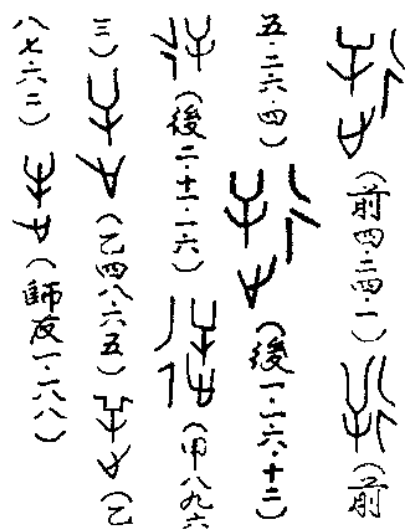 （前四·二四·一）（前
五·二六·四）（後一·一六·十二）
（後二·十一·一六）（甲八九六
三）（乙四八·六五）（乙
八七·六二）（師友一·一八八）